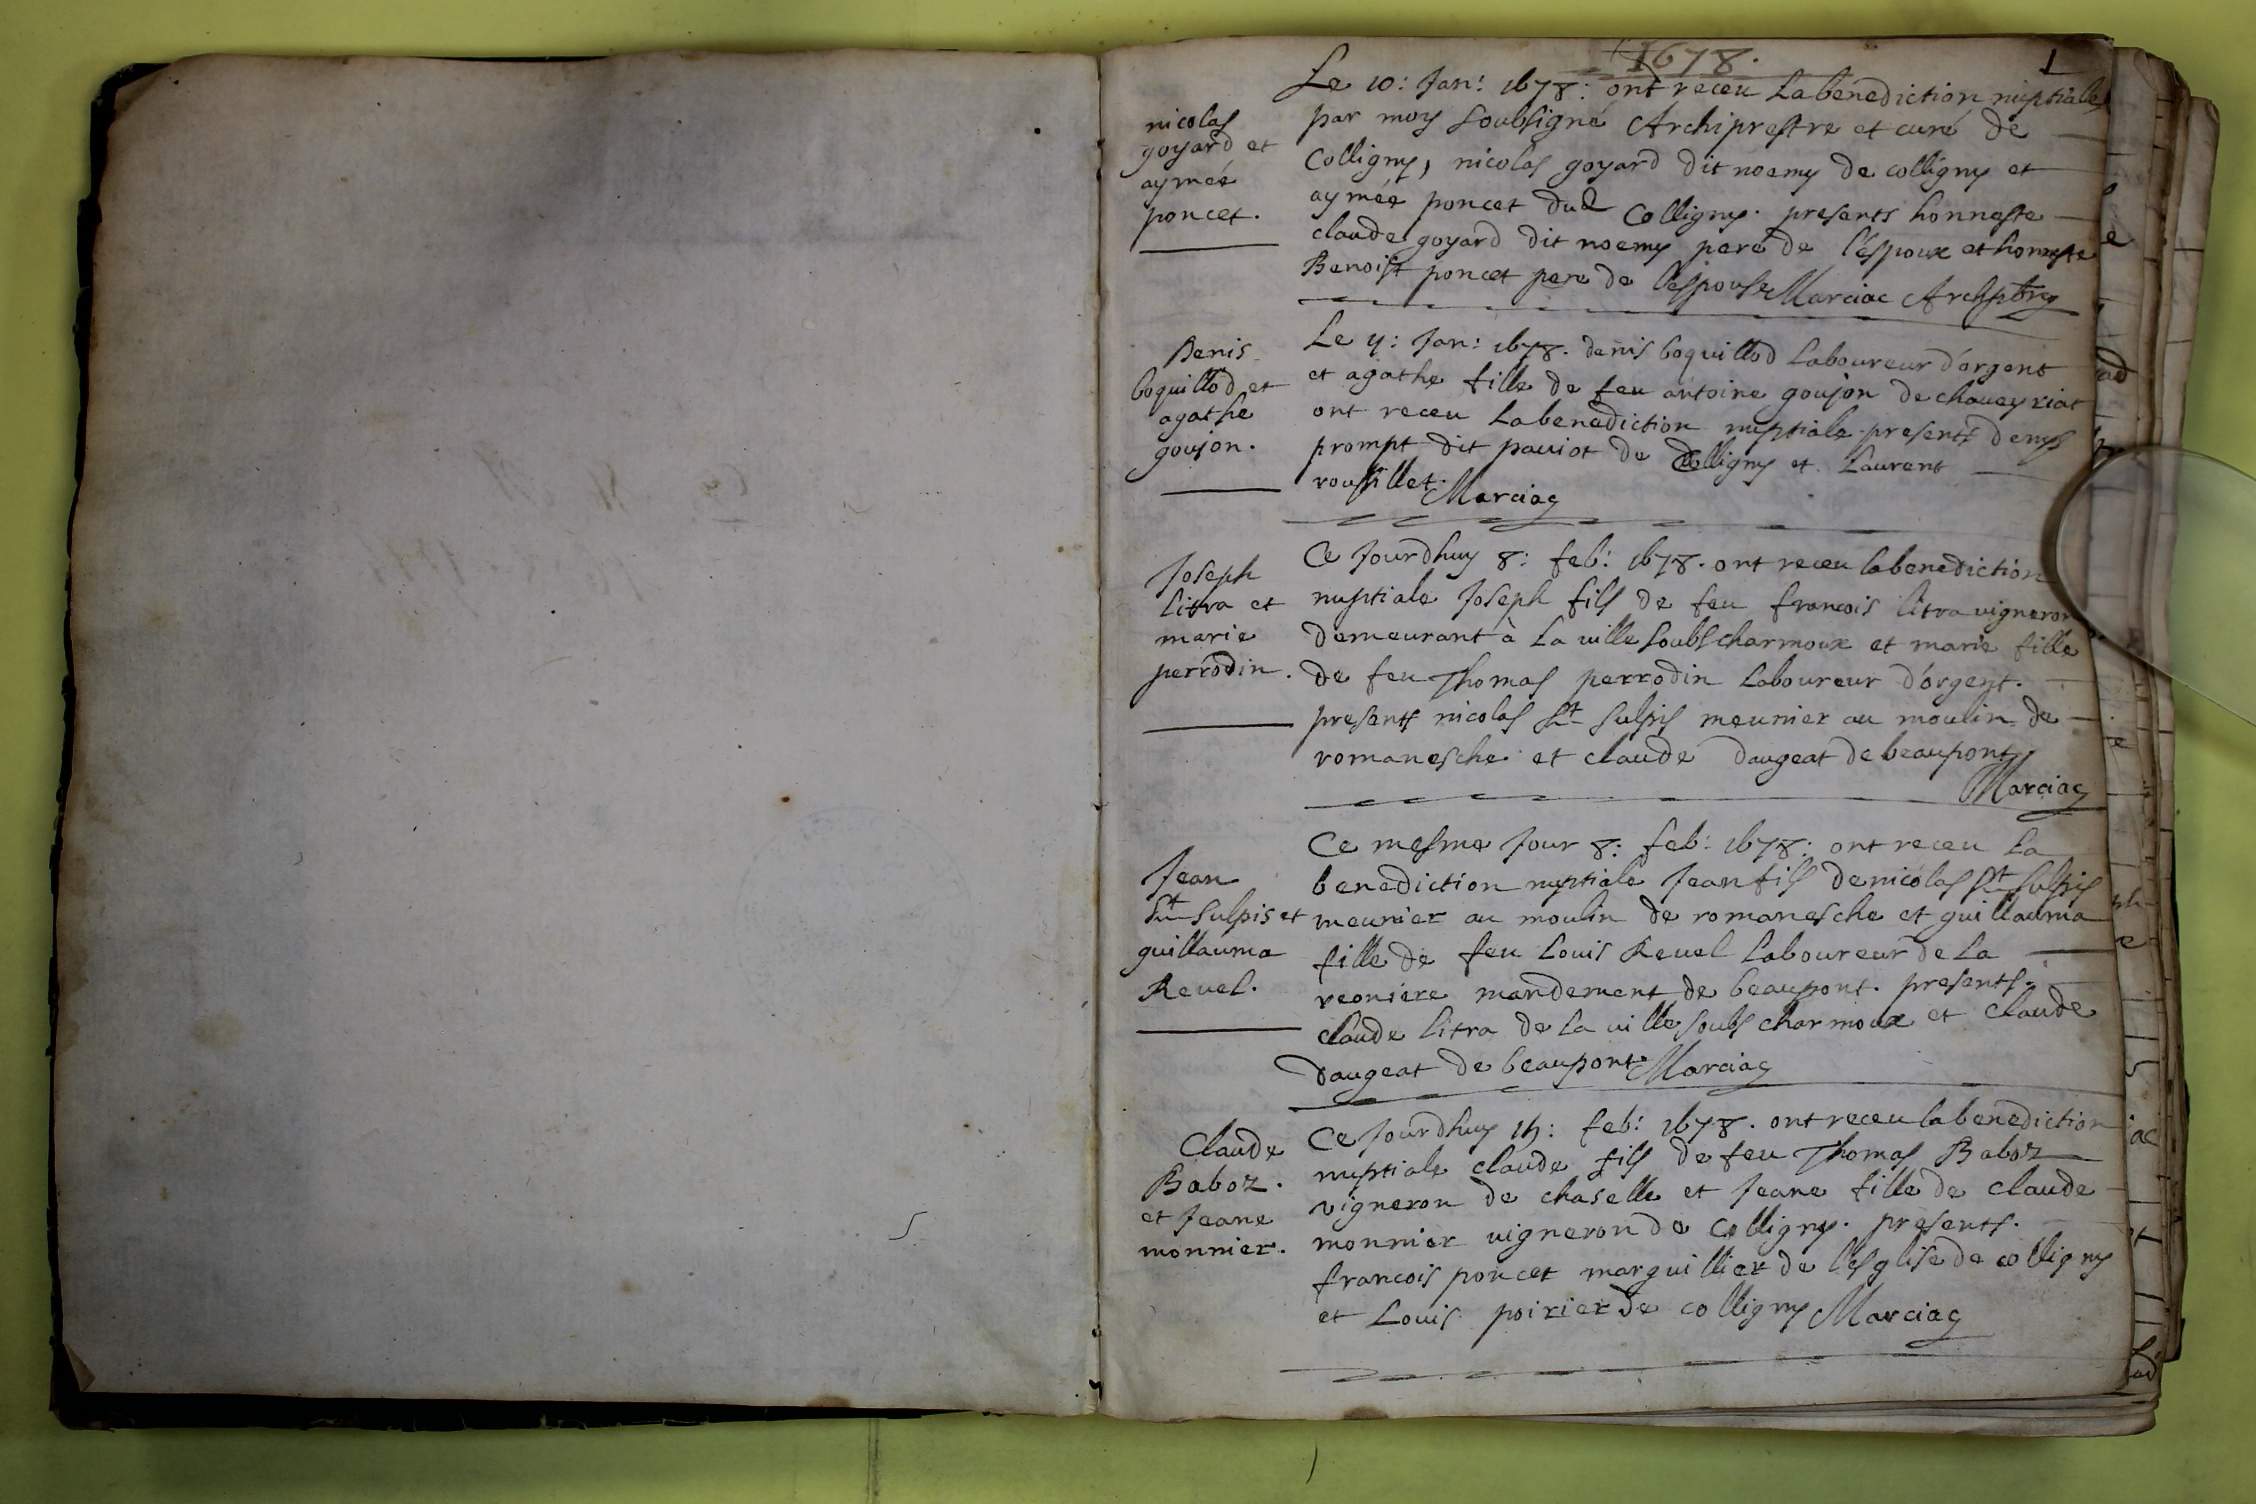 1678.
1
nicolas
goyard et
aymée
poncet.
Le 10: Jan: 1678: ont receu La benediction nuptiale
par moy soubsigné Archiprestre et curé de
Colligny, nicolas goyard dit noemy de colligny et
aymée poncet dud Colligny. presents honneste
claude goyard dit noemy pere de l'espoux et honneste
Benoist poncet pere de l'espouse Marciac Archptre
Denis
boquillod et
agathe
goujon.
Le 11: Jan: 1678. denis boquillod Laboureur d'orgent
et agathe fille de feu antoine goujon de chaueyriat
ont receu La benediction nuptiale presents denys
prompt dit pauiot de Colligny et Laurent
roussillet. Marciac
Joseph
litra et
marie
perrodin.
Ce Jourdhuy 8: feb: 1678. ont receu la benediction
nuptiale Joseph fils de feu francois litra vigneron
demeurant à La ville soubs charmoux et marie fille
de feu Thomas perrodin Laboureur d'orgent.
presents nicolas St Sulpis meunier au moulin de
romanesche et claude daugeat de beaupont
Marciac
Jean
St Sulpis et
guillauma
Reuel.
Ce mesme Jour 8: feb: 1678: ont receu La
benediction nuptiale Jean fils de nicolas St Sulpis
meunier au moulin de romanesche et guillauma
fille de feu Louis Reuel Laboureur de La
reoniere mandement de beaupont. presents.
claude litra de La ville soubs charmoux et claude
daugeat de beaupont Marciac
Claude
Baboz.
et Jeane
monnier.
Ce Jourdhuy 14: feb: 1678. ont receu la benediction
nuptiale claude fils de feu Thomas Baboz
vigneron de chaselle et Jeane fille de claude
monnier vigneron de Colligny. presents.
francois poncet marguillier de l'esglise de colligny
et Louis poirier de colligny Marciac